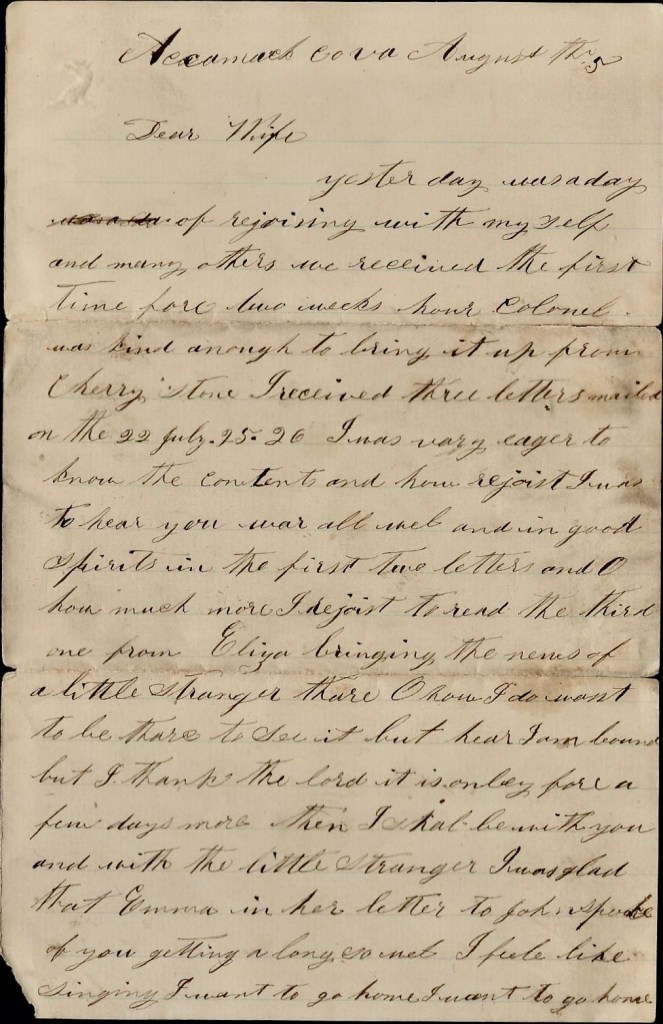 Accamack Co va August th 5
Dear Wife
yester day was a day
of rejoising with my self
and many others we received the first
time fore two weeks hour Colonel
was kind anough to bring it up from
Cherry stone I received three letters mailed
on the 22 July. 25. 26 I was vary eager to
know the contents and how rejoist I was
to hear you war all wel and in good
spirits in the first two letters and O
how much more I rejoist to read the third
one from Eliza bringing the news of
a little stranger thare O how I do want
to be thare to see it but hear I am bound
but I thank the lord it is onley fore a
few days more then I shal be with you
and with the little stranger I was glad
that Emma in her letter to John spoke
of you getting a long so wel I feele like
singing I want to go home I want to go home